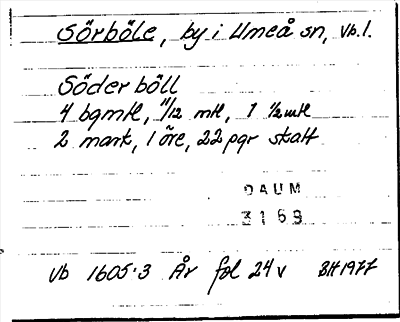 Sörböle, by i Umeå sn, Vb.l.
Söder böll
4 bgmtl, 11/12 mtl, 1 1/2 mtl
2 mark, 1 öre, 22 pgr skatt
DAUM
3169
Vb 1605:3 År fol 24 v BH 1977